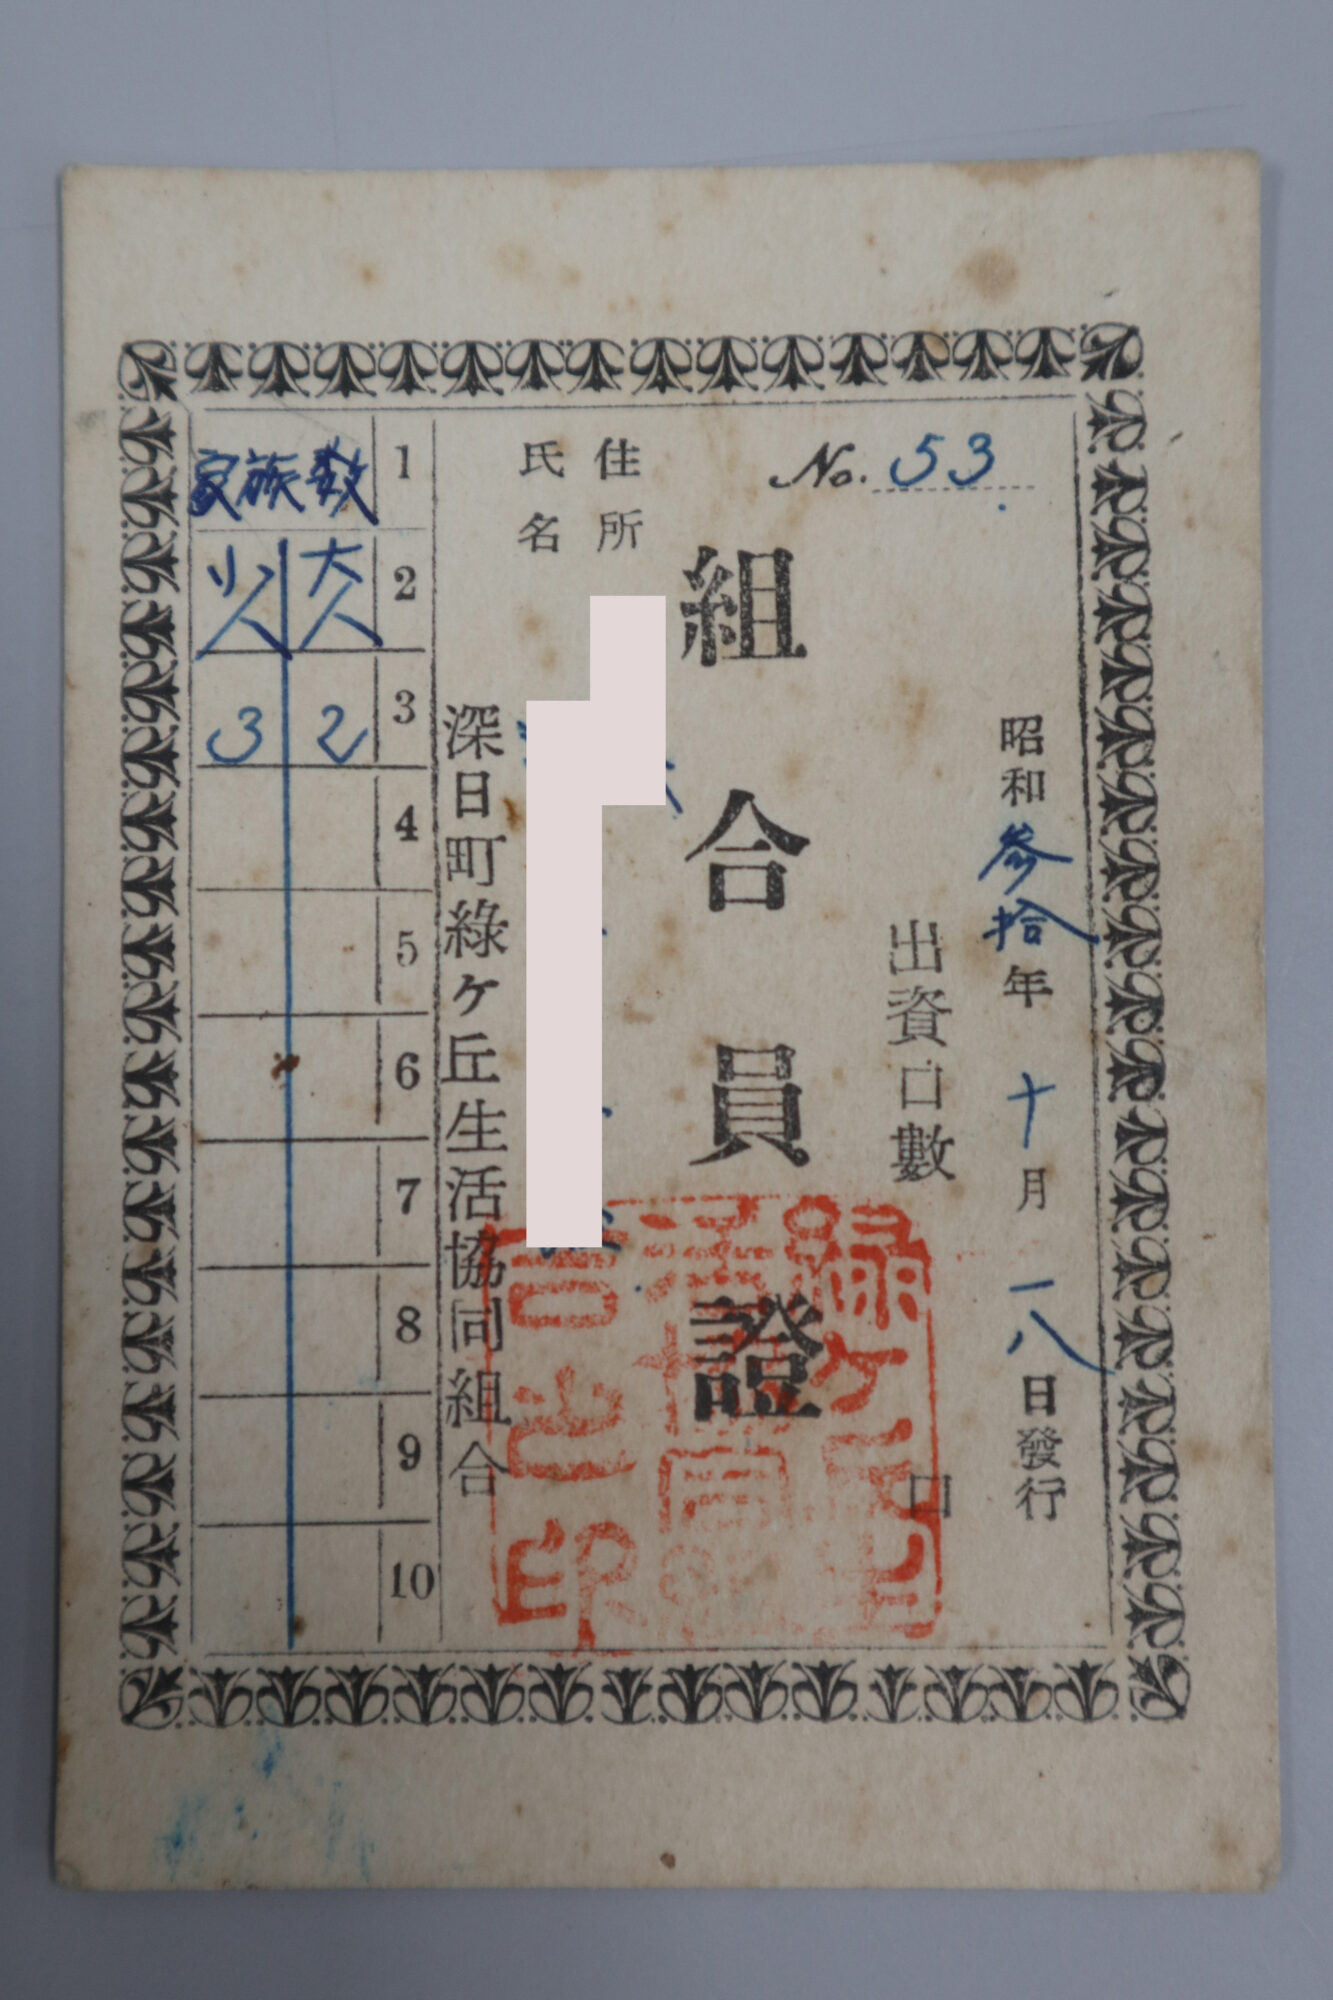 No. 53
昭和参拾年十月一八日發行
出資口數 口
組合員證
住所
氏名
深日町綠ヶ丘生活協同組合
1
2
3
4
5
6
7
8
9
10
家族数
大人
2
小人
3